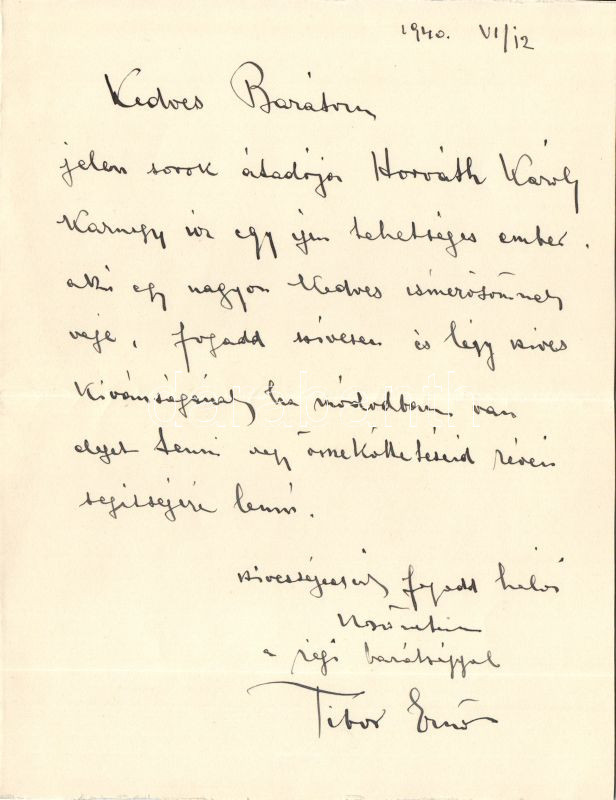 1940. VI/12
Kedves Barátom
jelen sorok átadója Horváth Károly
egy igen tehetséges ember,
aki egy nagyon kedves ismerősömnek
veje, fogadd szívesen és légy szíves
kívánságának, ha módodban van
eleget tenni vagy összeköttetéseid révén
segítségére lenni.
szívességedért fogadd hálás
köszönetem
a régi barátsággal
Tibor Ernő